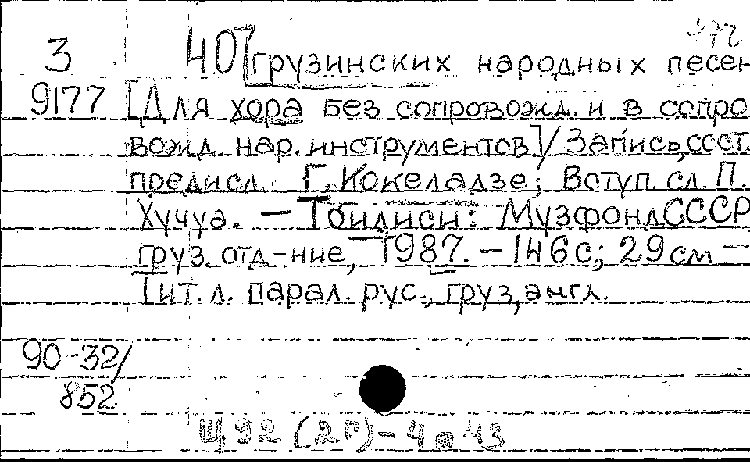 3 40 грузинских народных песен
9177 [Для хора без сопровожд. и в сопро
вожд. нар. инструментов] / Запись, сост.
предисл. Г. Кокеладзе; Вступ. сл. П.
Хучуа. — Тбилиси: Музфонд СССР
груз. отд-ние, 1987. – 146 с; 29 см —
Тит. л. парал. рус., груз, англ.
90-32/
852
Щ92 (2